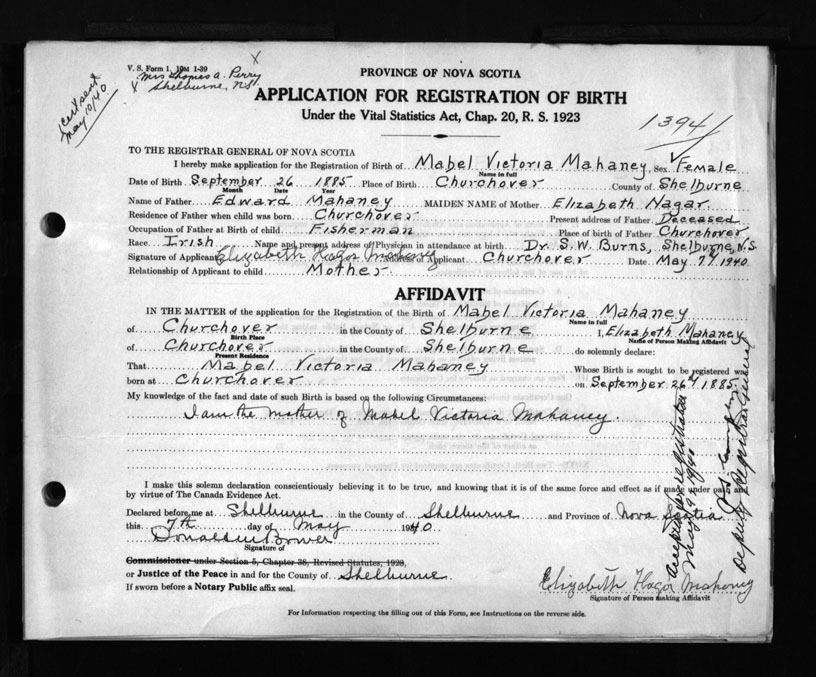 V. S. Form 1, 10M 1-39
Mrs Thomas A. Perry
Shelburne, NS
Cert sent
May 10/40
PROVINCE OF NOVA SCOTIA
APPLICATION FOR REGISTRATION OF BIRTH
Under the Vital Statistics Act, Chap. 20, R. S. 1923
1394
TO THE REGISTRAR GENERAL OF NOVA SCOTIA
I hereby make application for the Registration of Birth of Mabel Victoria Mahaney, Sex Female
Name in full
Date of Birth September 26 1885 Place of Birth Churchover County of Shelburne
Month Date Year
Name of Father Edward Mahaney MAIDEN NAME of Mother Elizabeth Hagar
Residence of Father when child was born Churchover Present address of Father Deceased
Occupation of Father at Birth of Child Fisherman Place of birth of Father Churchover
Race Irish Name and present address of Physician in attendance at birth Dr. S.W. Burns, Shelburne, N.S
Signature of Applicant Elizabeth Hagar Mahaney Address of Applicant Churchover Date May 7th 1940
Relationship of Applicant to child Mother
AFFIDAVIT
IN THE MATTER of the application for the Registration of the Birth of Mabel Victoria Mahaney
Name in full
of Churchover in the County of Shelburne I, Elizabeth Mahaney
Birth Place Name of Person Making Affidavit
of Churchover in the County of Shelburne do solemnly declare:
Present Residence
That Mabel Victoria Mahaney Whose Birth is sought to be registered was
born at Churchover on September 26th 1885.
My knowledge of the fact and date of such Birth is based on the following Circumstances:
I am the mother of Mabel Victoria Mahaney.
I make this solemn declaration conscientiously believing it to be true, and knowing that it is of the same force and effect as if made under oath and
by virtue of The Canada Evidence Act.
Declared before me at Shelburne in the County of Shelburne and Province of Nova Scotia
this 7th day of May 1940
Donald Bower
Signature of
Commissioner under Section 5, Chapter 38, Revised Statutes, 1923,
or Justice of the Peace in and for the County of Shelburne.
If sworn before a Notary Public affix seal.
Elizabeth Hagar Mahaney
Signature of Person making Affidavit
Accepted for registration
May 9 1940
Deputy Registrar General
For Information respecting the filling out of this Form, see Instructions on the reverse side.